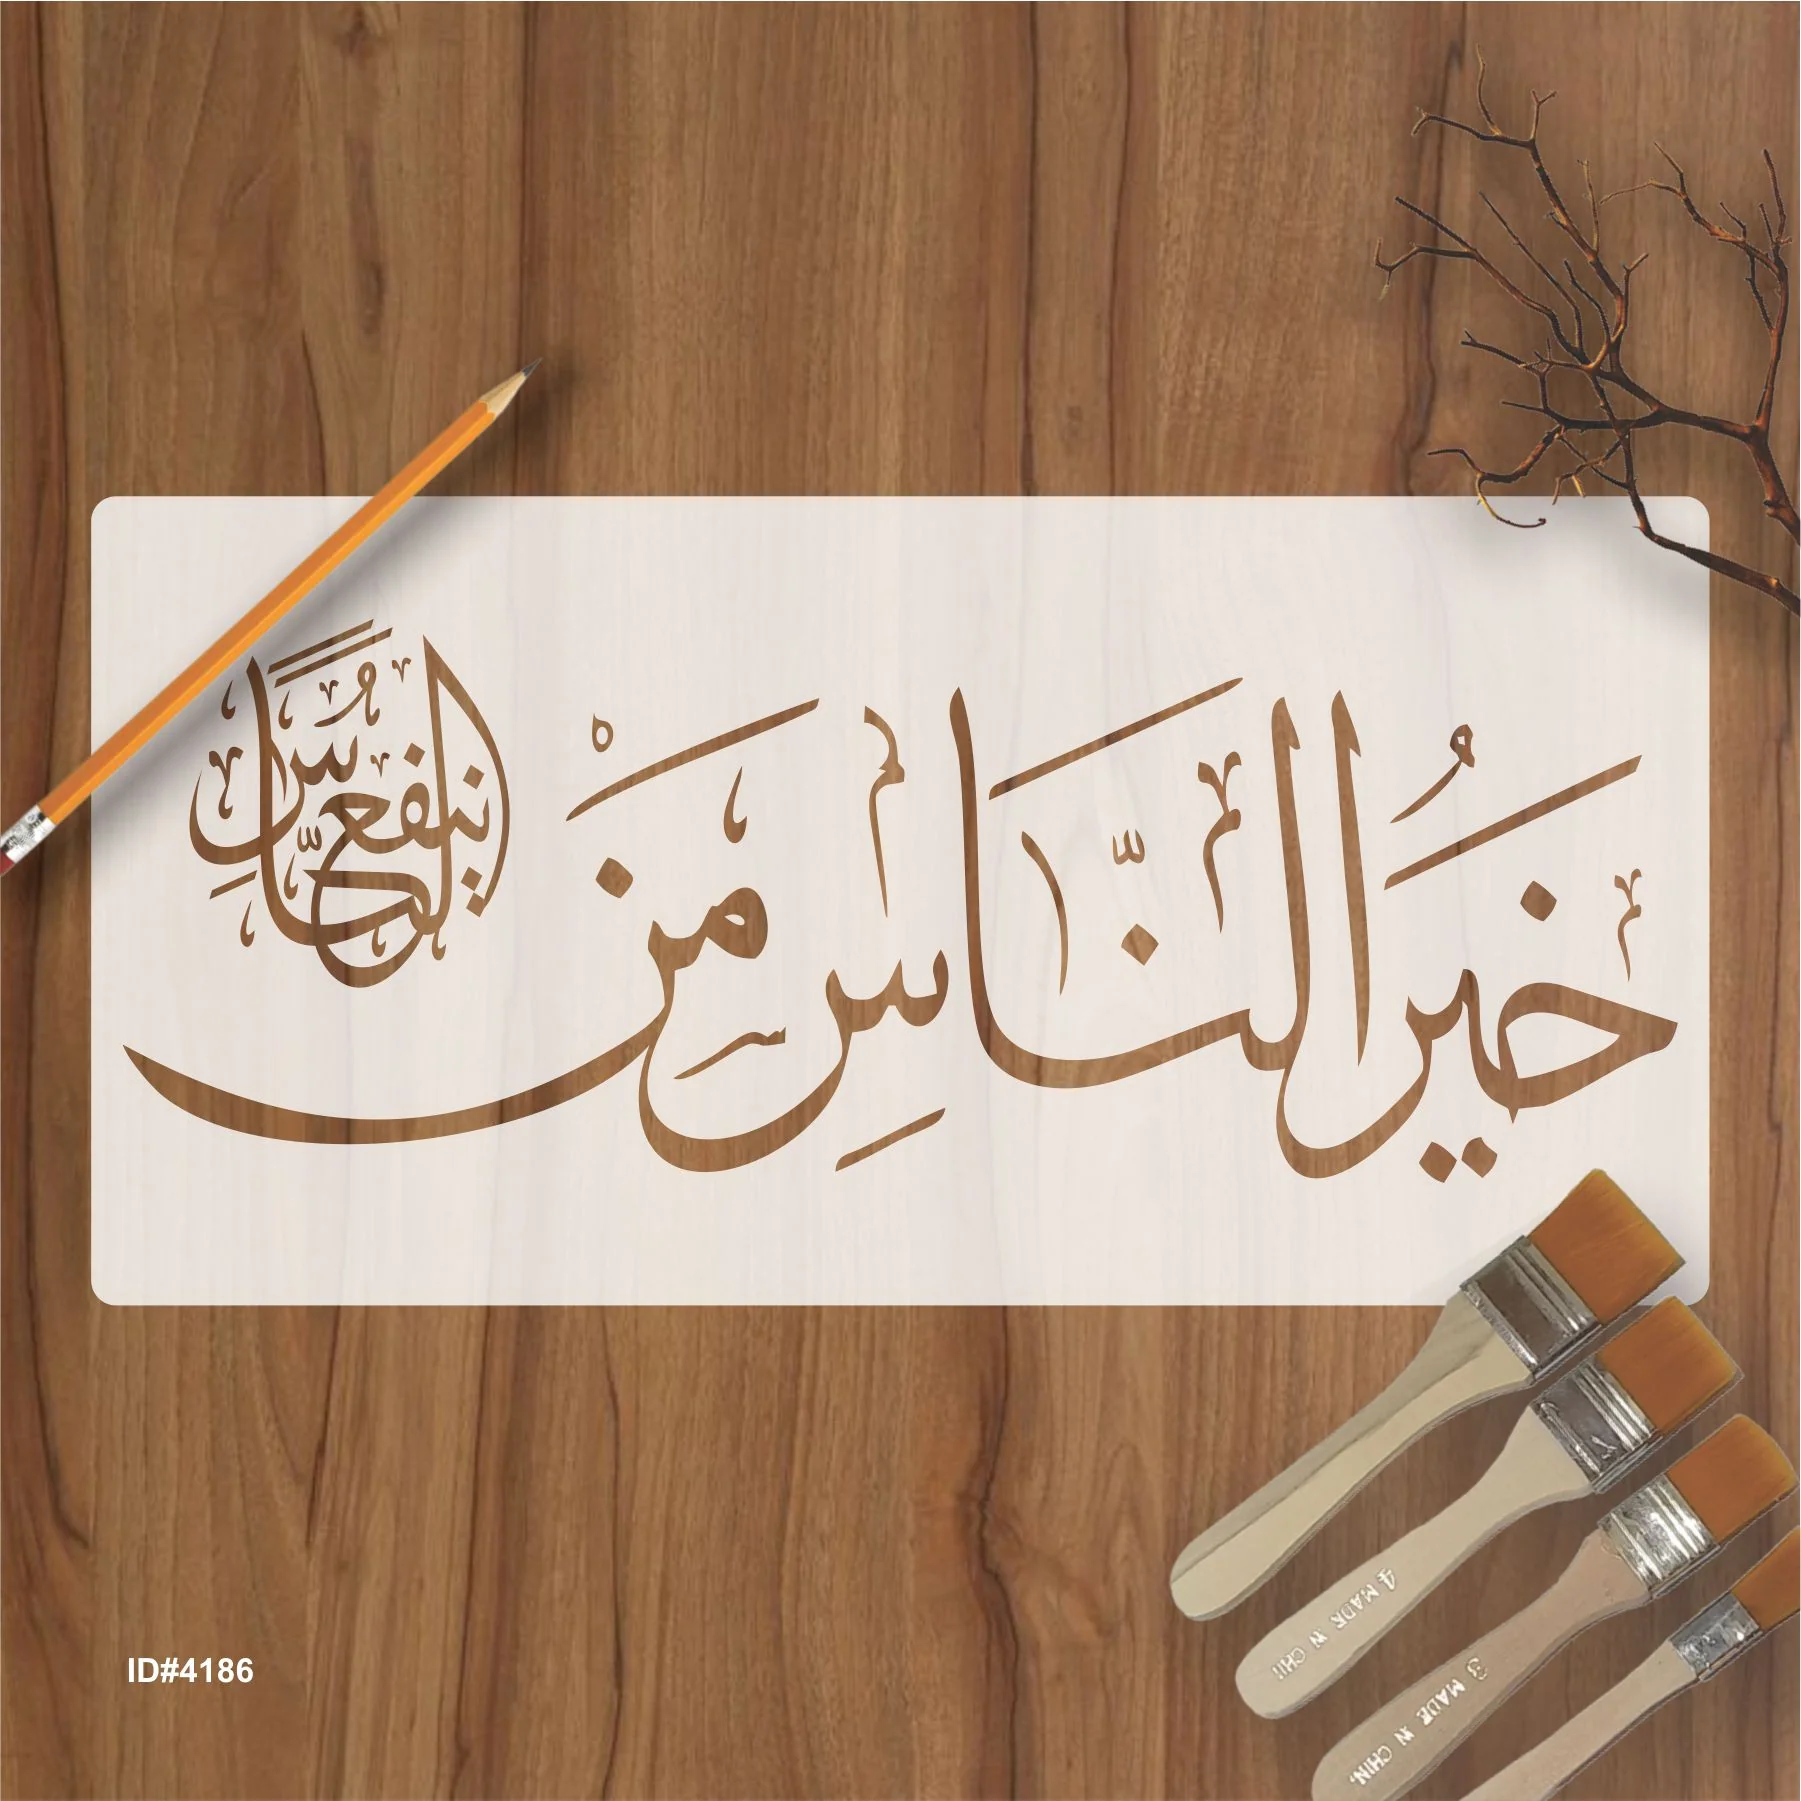 خَيْرُ النَّاسِ مَنْ يَنْفَعُ النَّاسَ
ID#4186
4 MADE IN CHI
3 MADE IN CHIN.